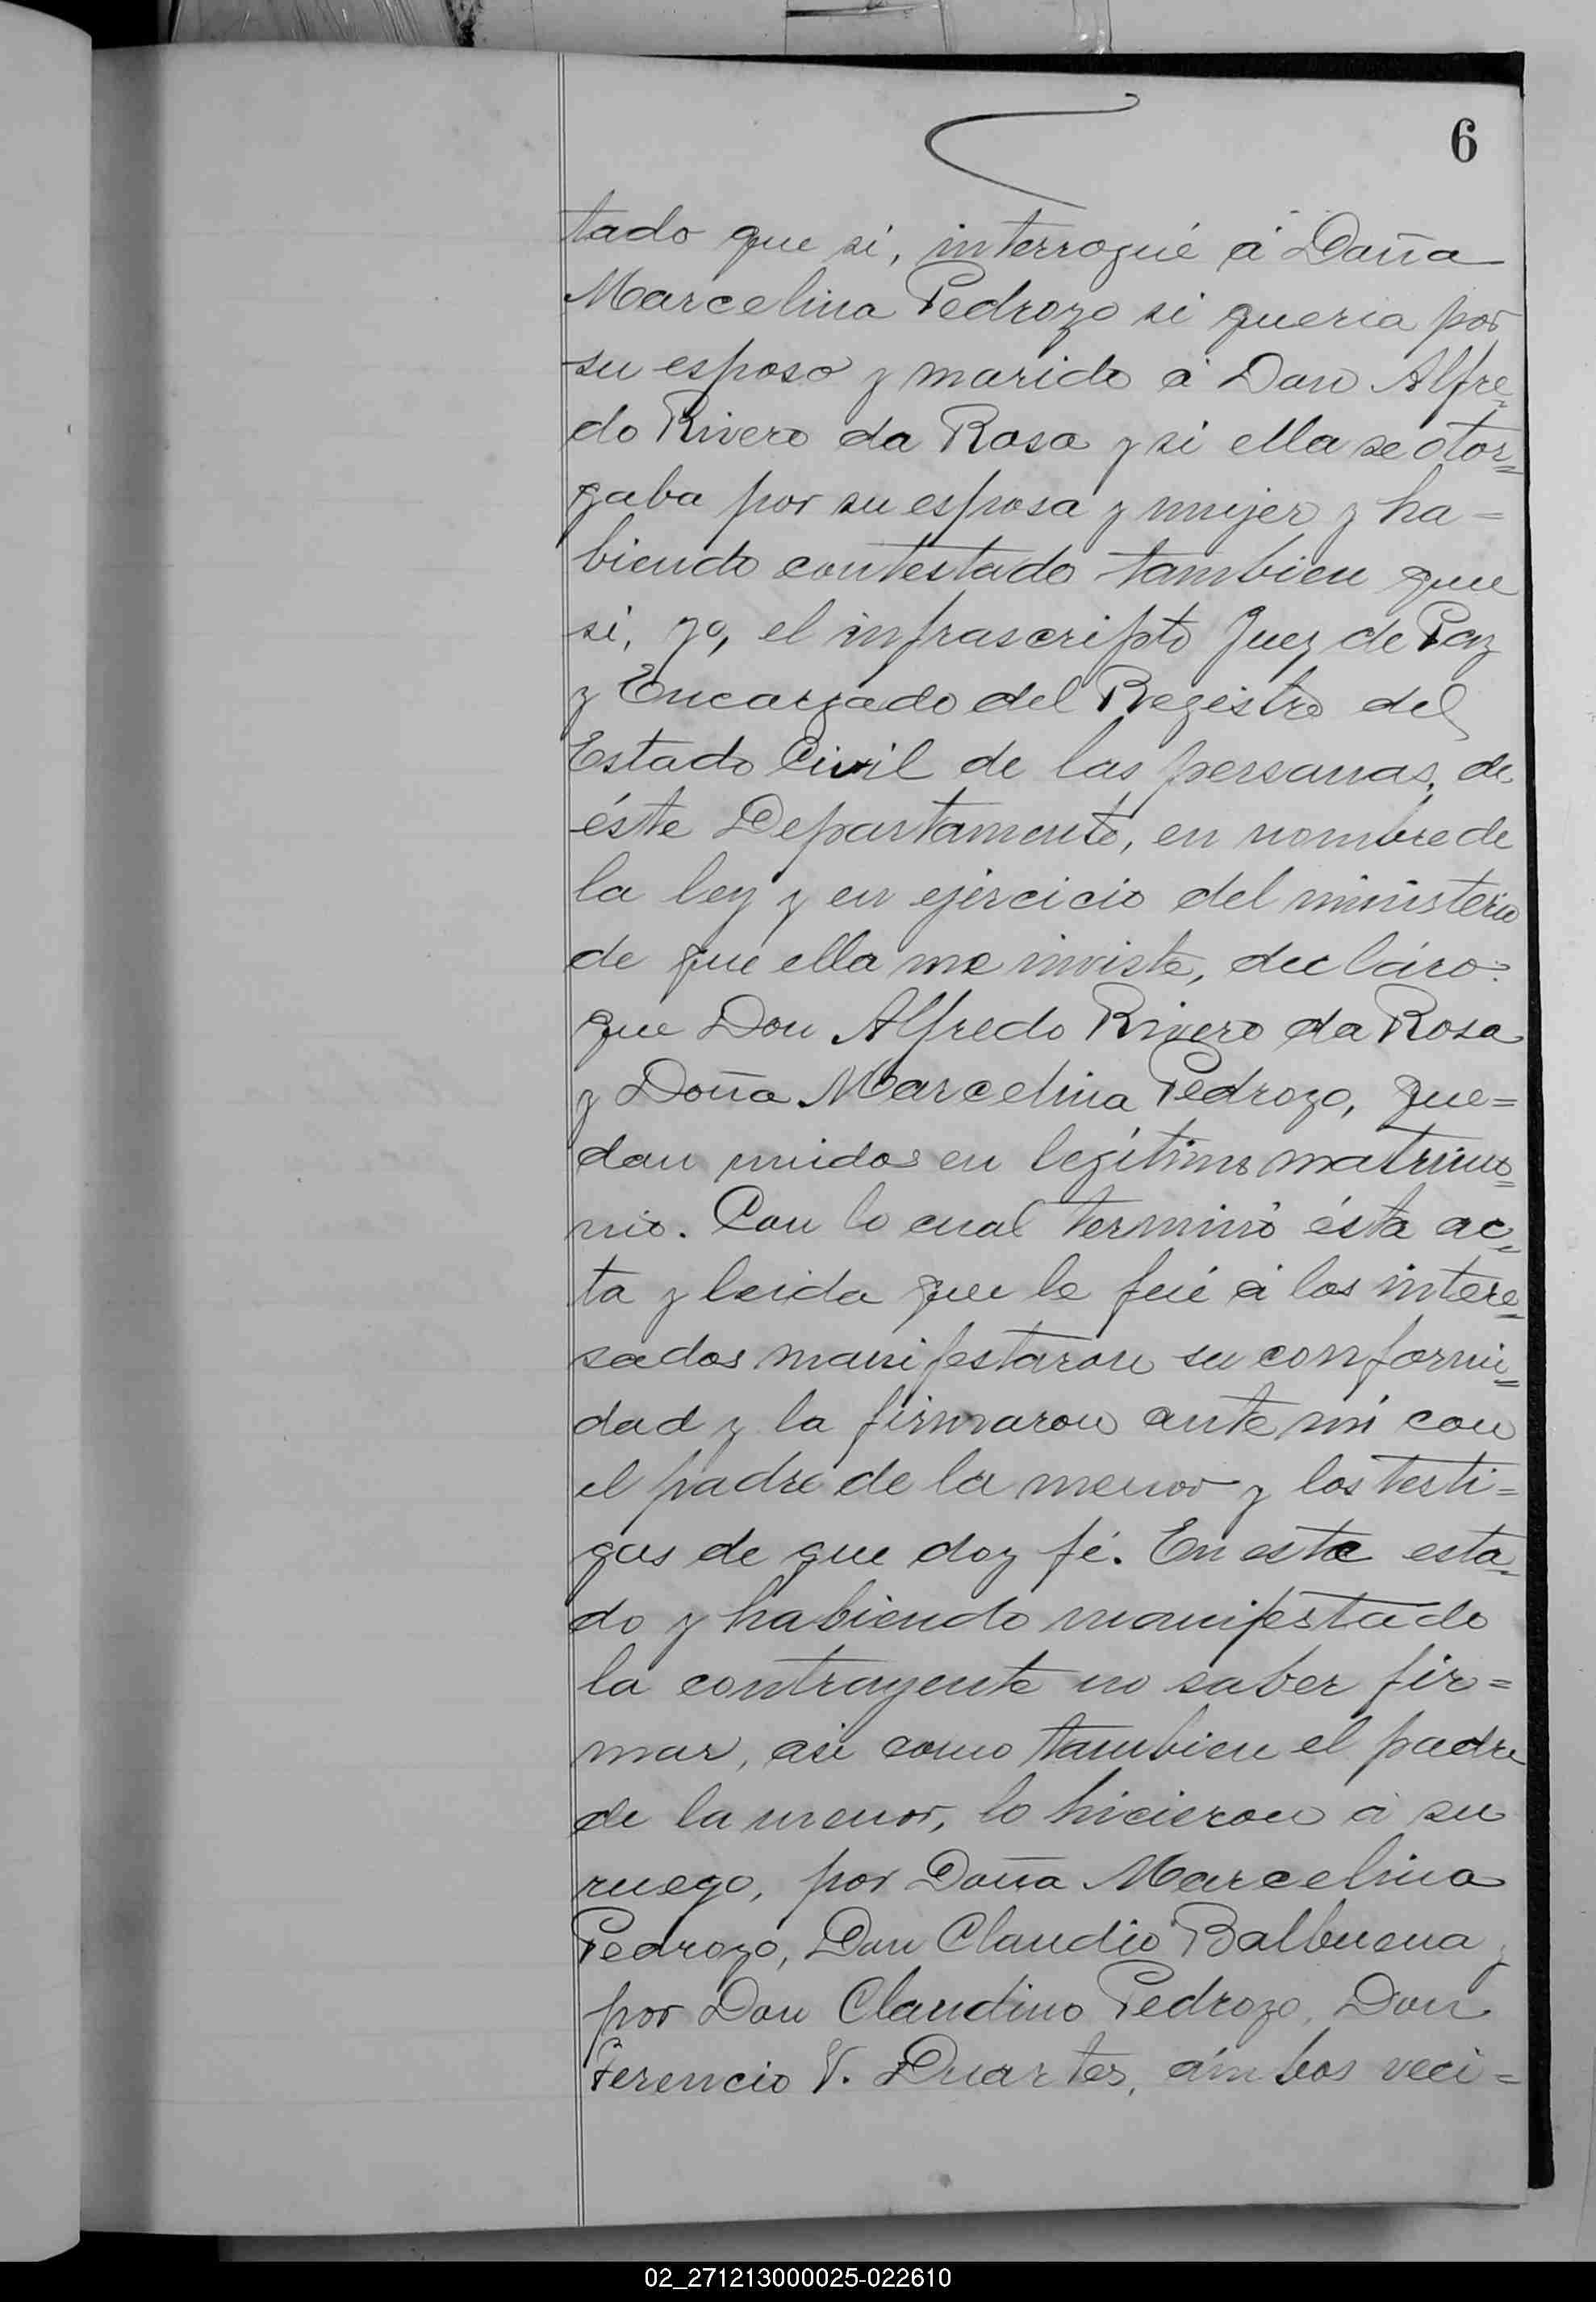 6
tado que si, interrogué á Doña
Marcelina Pedrozo si queria por
su esposo y marido á Don Alfre=
do Rivero da Rosa y si ella se otor=
gaba por su esposa y mujer y ha=
biendo contestado tambien que
si, yo, el infrascripto Juez de Paz
y Encargado del Registro del
Estado Civil de las personas, de
éste Departamento, en nombre de
la ley y en ejercicio del ministerio
de que ella me inviste, decláro:
que Don Alfredo Rivero da Rosa
y Doña Marcelina Pedrozo, que=
dan unidos en legítimo matrimo=
nio. Con lo cual terminó ésta ac=
ta y leida que le fué á los intere=
sados manifestaron su conformi=
dad y la firmaron ante mí con
el padre de la menor y los testi=
gos de que doy fé. En este esta=
do y habiendo manifestado
la contrayente no saber fir=
mar, asi como tambien el padre
de la menor, lo hicieron á su
ruego, por Doña Marcelina
Pedrozo, Don Claudio Balbuena y
por Don Claudino Pedrozo, Don
V. Duartes, ámbos veci=
02_271213000025-022610